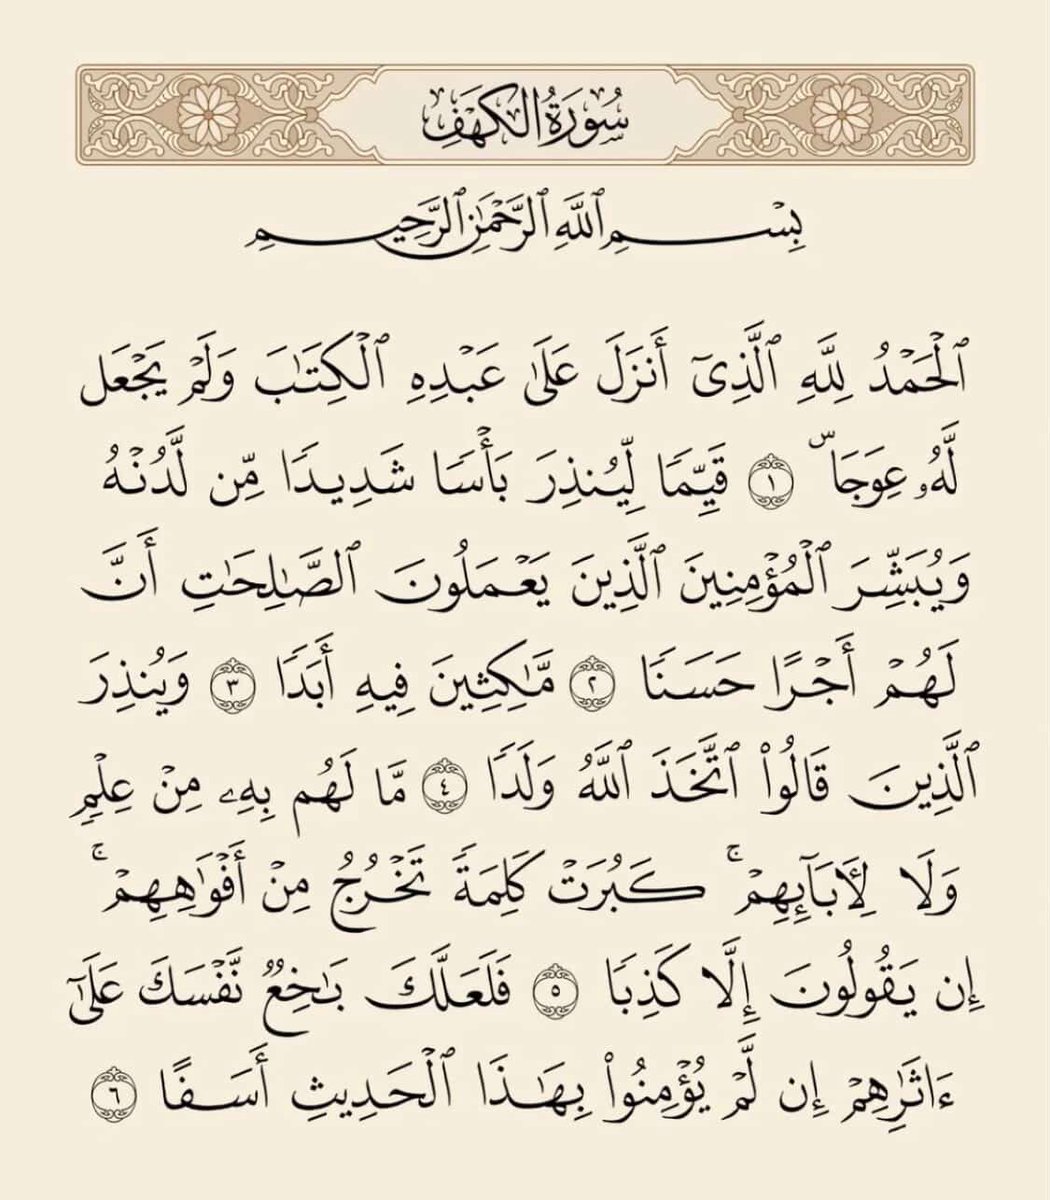 سُورَةُ الكَهۡفِ
بِسۡمِ ٱللَّهِ ٱلرَّحۡمَٰنِ ٱلرَّحِيمِ
ٱلۡحَمۡدُ لِلَّهِ ٱلَّذِيٓ أَنزَلَ عَلَىٰ عَبۡدِهِ ٱلۡكِتَٰبَ وَلَمۡ يَجۡعَل
لَّهُۥ عِوَجَاۜ ١ قَيِّمٗا لِّيُنذِرَ بَأۡسٗا شَدِيدٗا مِّن لَّدُنۡهُ
وَيُبَشِّرَ ٱلۡمُؤۡمِنِينَ ٱلَّذِينَ يَعۡمَلُونَ ٱلصَّٰلِحَٰتِ أَنَّ
لَهُمۡ أَجۡرًا حَسَنٗا ٢ مَّٰكِثِينَ فِيهِ أَبَدٗا ٣ وَيُنذِرَ
ٱلَّذِينَ قَالُواْ ٱتَّخَذَ ٱللَّهُ وَلَدٗا ٤ مَّا لَهُم بِهِۦ مِنۡ عِلۡمٖ
وَلَا لِأٓبَآئِهِمۡۚ كَبُرَتۡ كَلِمَةٗ تَخۡرُجُ مِنۡ أَفۡوَٰهِهِمۡۚ
إِن يَقُولُونَ إِلَّا كَذِبٗا ٥ فَلَعَلَّكَ بَٰخِعٞ نَّفۡسَكَ عَلَىٰٓ
ءَاثَٰرِهِمۡ إِن لَّمۡ يُؤۡمِنُواْ بِهَٰذَا ٱلۡحَدِيثِ أَسَفًا ٦